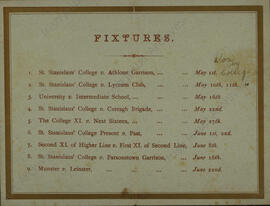 FIXTURES.
Won by College
1. St. Stanislaus' College v. Athlone Garrison, ... May 1st.
2. St. Stanislaus' College v. Lyceum Club, ... May 10th, 11th. "
3. University v. Intermediate School, ... May 16th
4. St. Stanislaus' College v. Curragh Brigade, ... May 22nd.
5. The College XI. v. Next Sixteen, ... May 27th.
6. St. Stanislaus' College Present v. Past, ... June 1st, 2nd.
7. Second XI. of Higher Line v. First XI. of Second Line, June 8th.
8. St. Stanislaus' College v. Parsonstown Garrison, ... June 15th.
9. Munster v. Leinster, ... June 22nd.